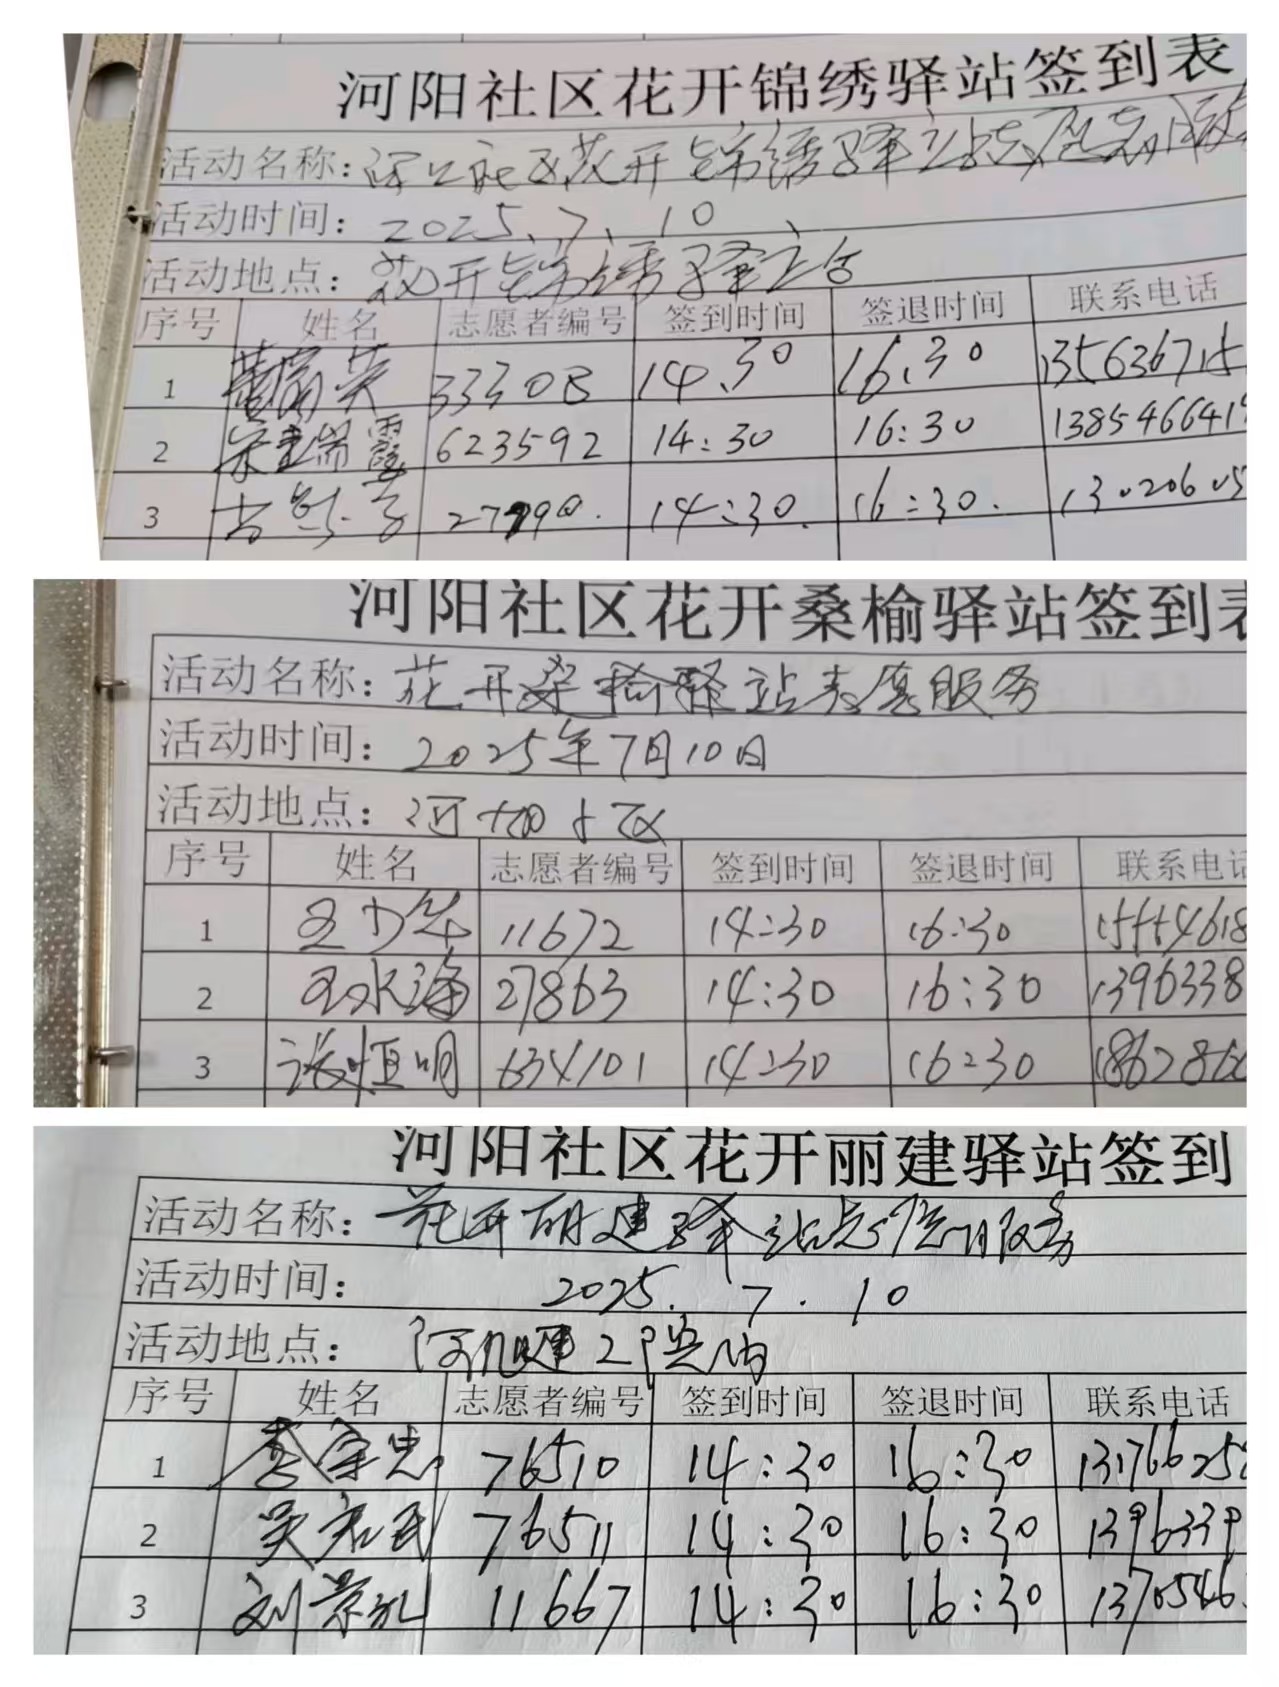 河阳社区花开锦绣驿站签到表
活动名称：河阳社区花开锦绣驿站志愿服
活动时间：2025、7、10
活动地点：花开锦绣驿站
序号 姓名 志愿者编号 签到时间 签退时间 联系电话
1 33308 14.30 16.30 135636715
2 宋瑞霞 623592 14:30 16:30 138546641
3 14:30. 16:30. 13020605
河阳社区花开桑榆驿站签到表
活动名称：花开桑榆驿站志愿服务
活动时间：2025年7月10日
活动地点：河阳小区
序号 姓名 志愿者编号 签到时间 签退时间 联系电话
1 王少华 11672 14:30 16:30 155554618
2 王永海 27863 14:30 16:30 1396338
3 张恒明 634101 14:30 16:30 186286
河阳社区花开丽建驿站签到
活动名称：花开丽建驿站志愿服务
活动时间：2025.7.10
活动地点：院内
序号 姓名 志愿者编号 签到时间 签退时间 联系电话
1 李宗忠 76510 14:30 16:30 13176625
2 吴宏民 76511 14:30 16:30 1396339
3 刘景礼 11667 14:30 16:30 1370546